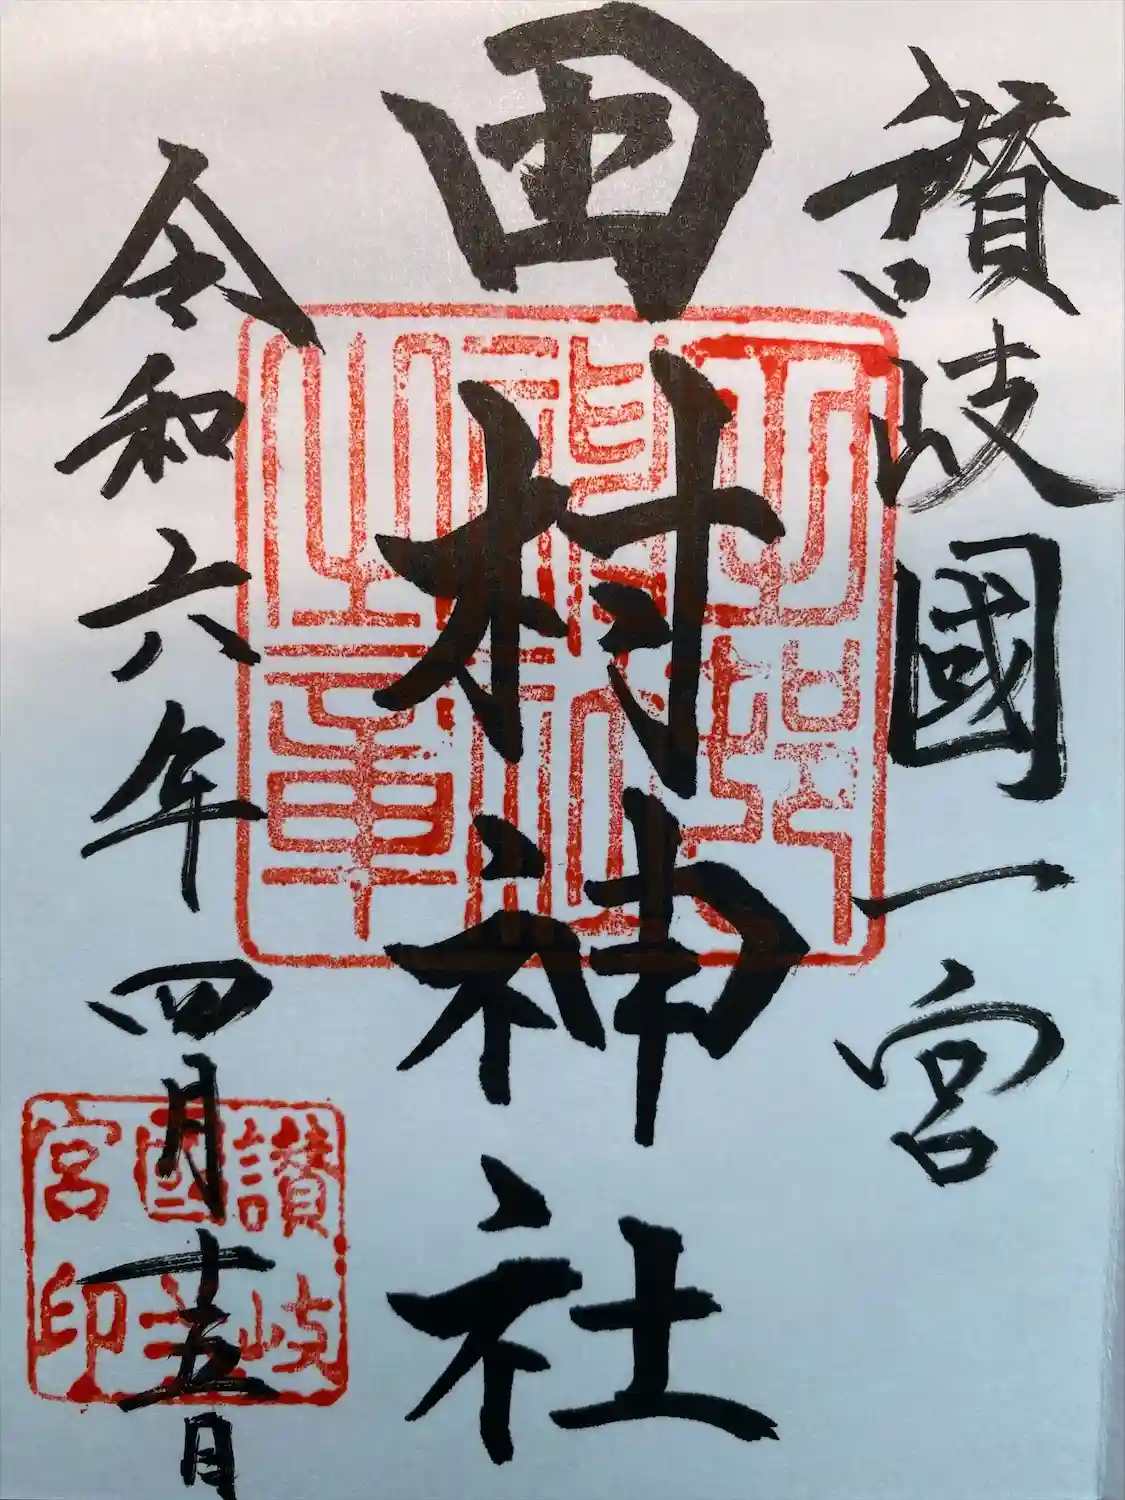 讃岐國一宮
田村神社
令和六年四月十五日
讃岐
國一
宮印